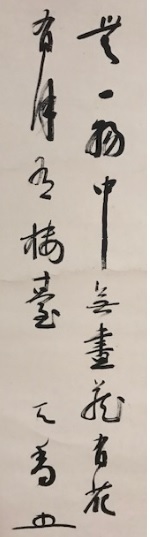 無一物中無盡藏有花
有月有樓臺 天香